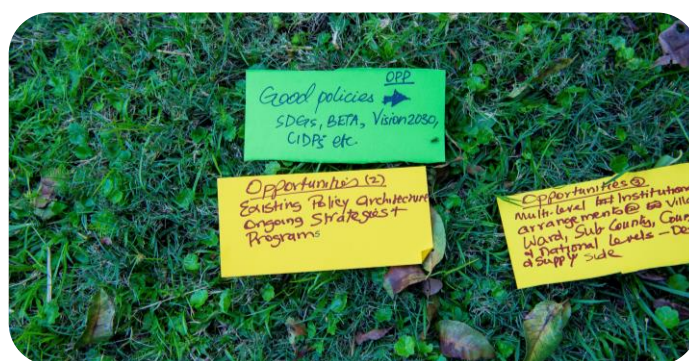 OPP
Good policies
SDGs, BETA, Vision 2030,
CIDPs etc
Opportunities (2)
Existing Policy Architecture
Ongoing Strategies +
Programs
Opportunities
Multi-level Institution
arrangements @ Villa
Ward, Sub County, Coun
& National Levels – De
& Supply side